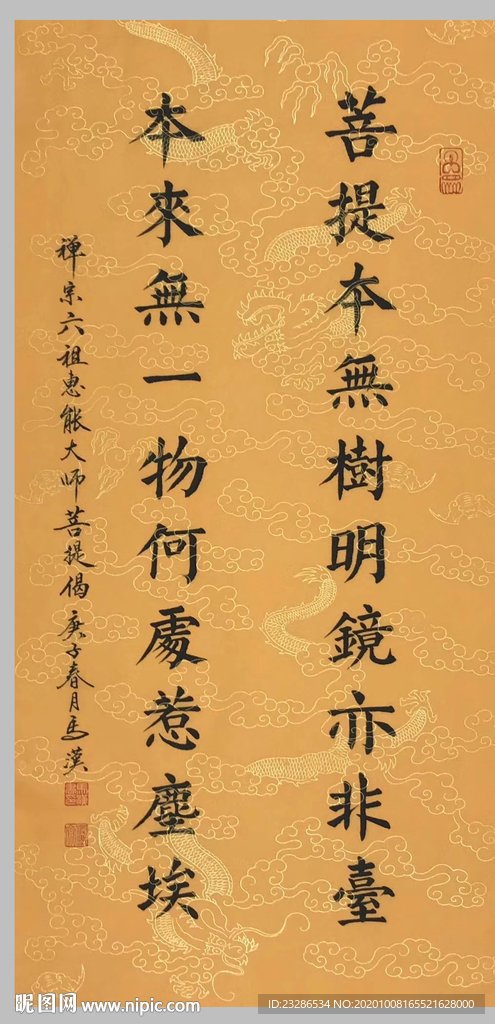 菩提本無樹明鏡亦非臺
本來無一物何處惹塵埃
禪宗六祖惠能大師菩提偈 庚子春月馬漢
昵图网 www.nipic.com
ID:23286534 NO:20201008165521628000